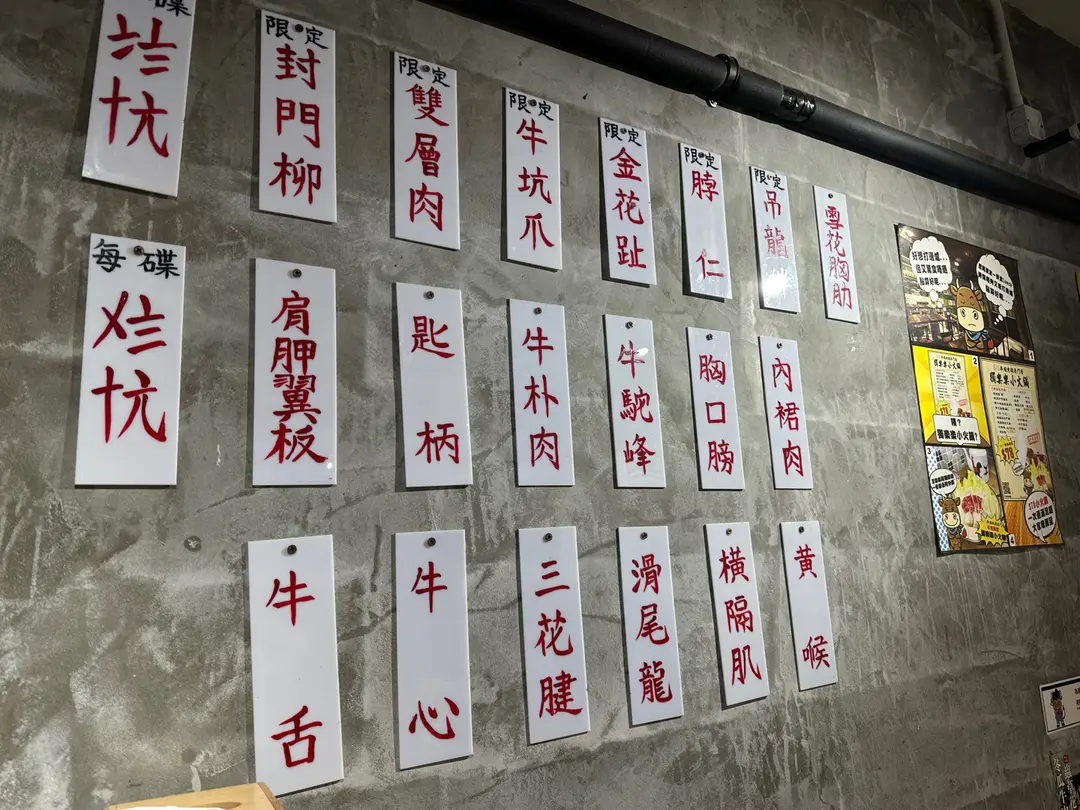 每碟
十元
限定
封門柳
限定
雙層肉
限定
牛坑爪
限定
金花趾
限定
脖仁
限定
吊龍
雪花胸肋
每碟
十元
肩胛翼板
匙柄
牛朴肉
牛駝峰
胸口膀
內裙肉
牛舌
牛心
三花腱
滑尾龍
橫隔肌
黄喉
獨樂樂小火鍋